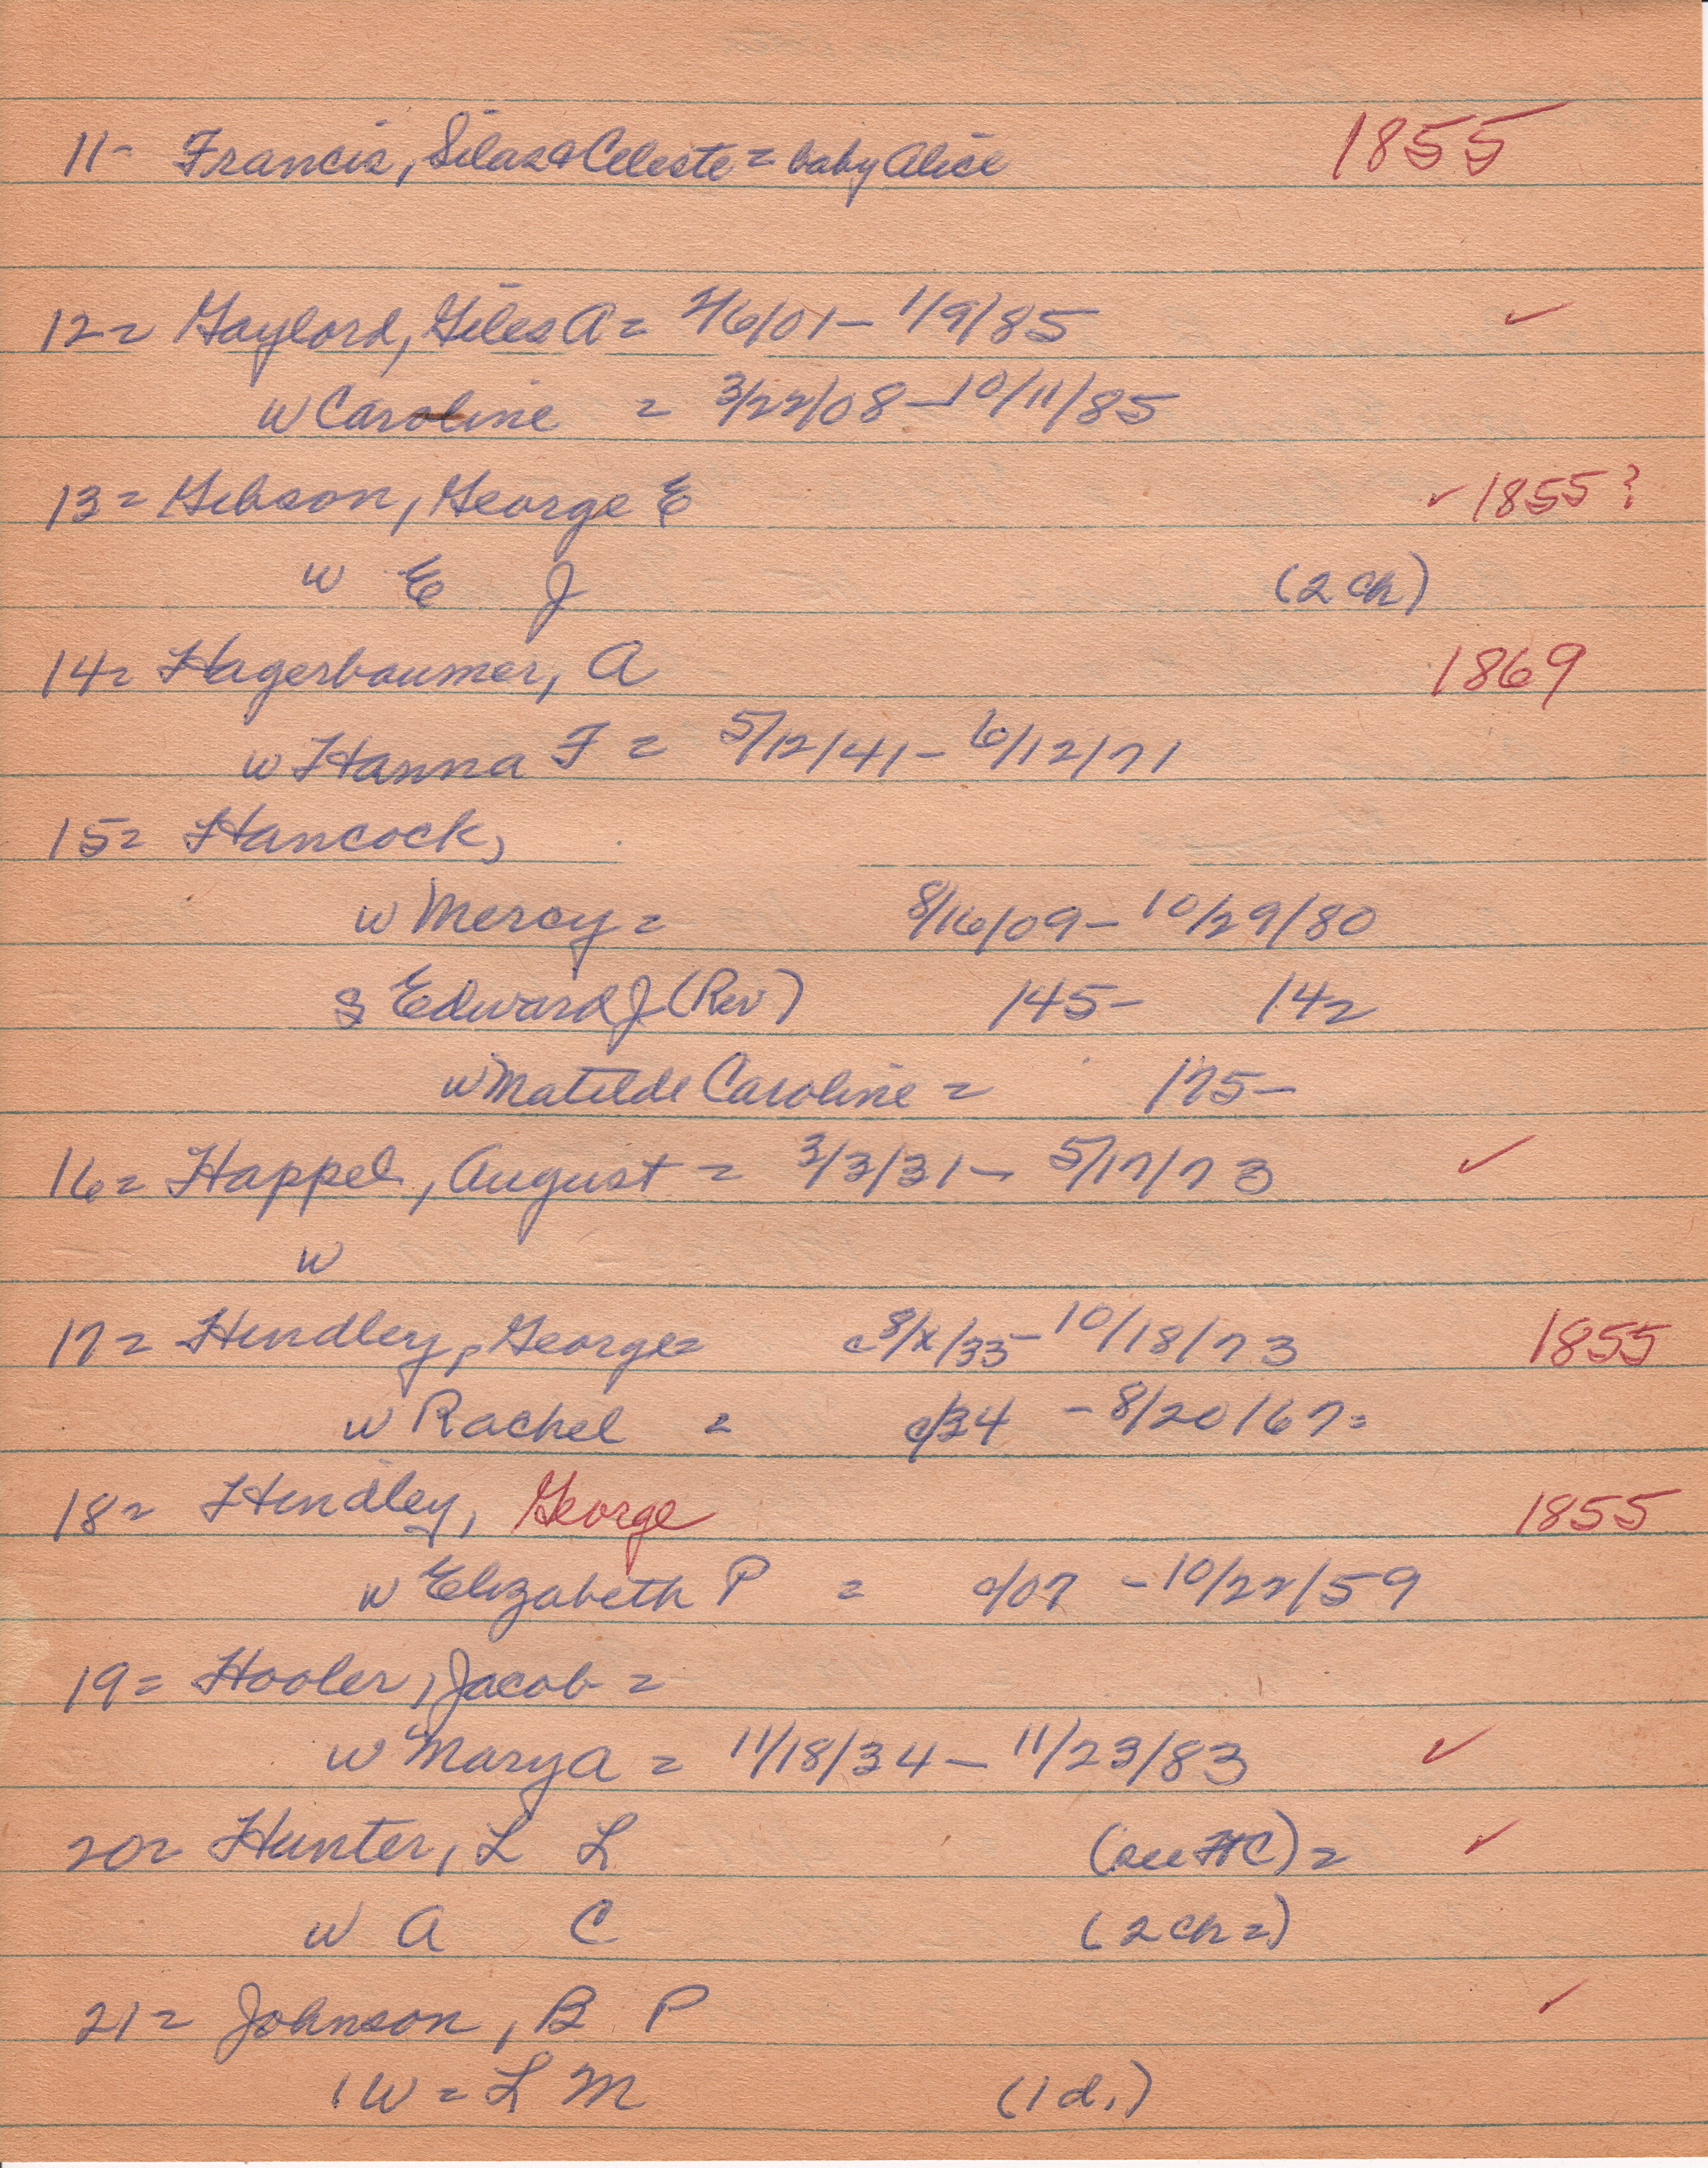 11- Francis, Silas & Celeste = baby Alice 1855
12= Gaylord, Giles A = 2/6/01 - 1/9/85 ✓
w Caroline = 3/22/08 - 10/11/85
13= Gibson, George E ✓ 1855?
w E J (2 ch)
14= Hagerbaumer, A 1869
w Hanna F = 5/12/41 - 6/12/71
15= Hancock,
w Mercy = 8/16/09 - 10/29/80
s Edward J (Rev) 145- 142
w Matilde Caroline = 175-
16= Happel, August = 3/3/31 - 5/17/73 ✓
w
17= Hendley, George= c 8/x/33 - 10/18/73 1855
w Rachel = c/34 - 8/20/67=
18= Hendley, George 1855
w Elizabeth P = c/07 - 10/22/59
19= Hooler, Jacob =
w Mary A = 11/18/34 - 11/23/83 ✓
20= Hunter, L L (see HC) = ✓
w A C (2 ch =)
21= Johnson, B P ✓
1 w = L M (1 d.)